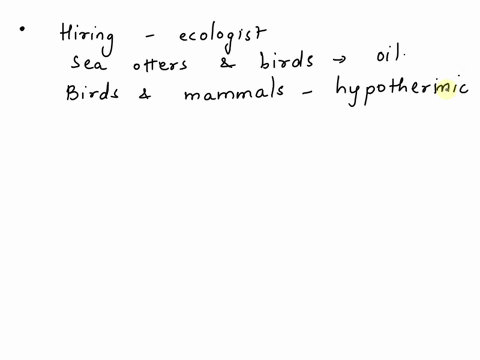 • Hiring - ecologist
Sea otters & birds → oil.
Birds & mammals - hypothermic